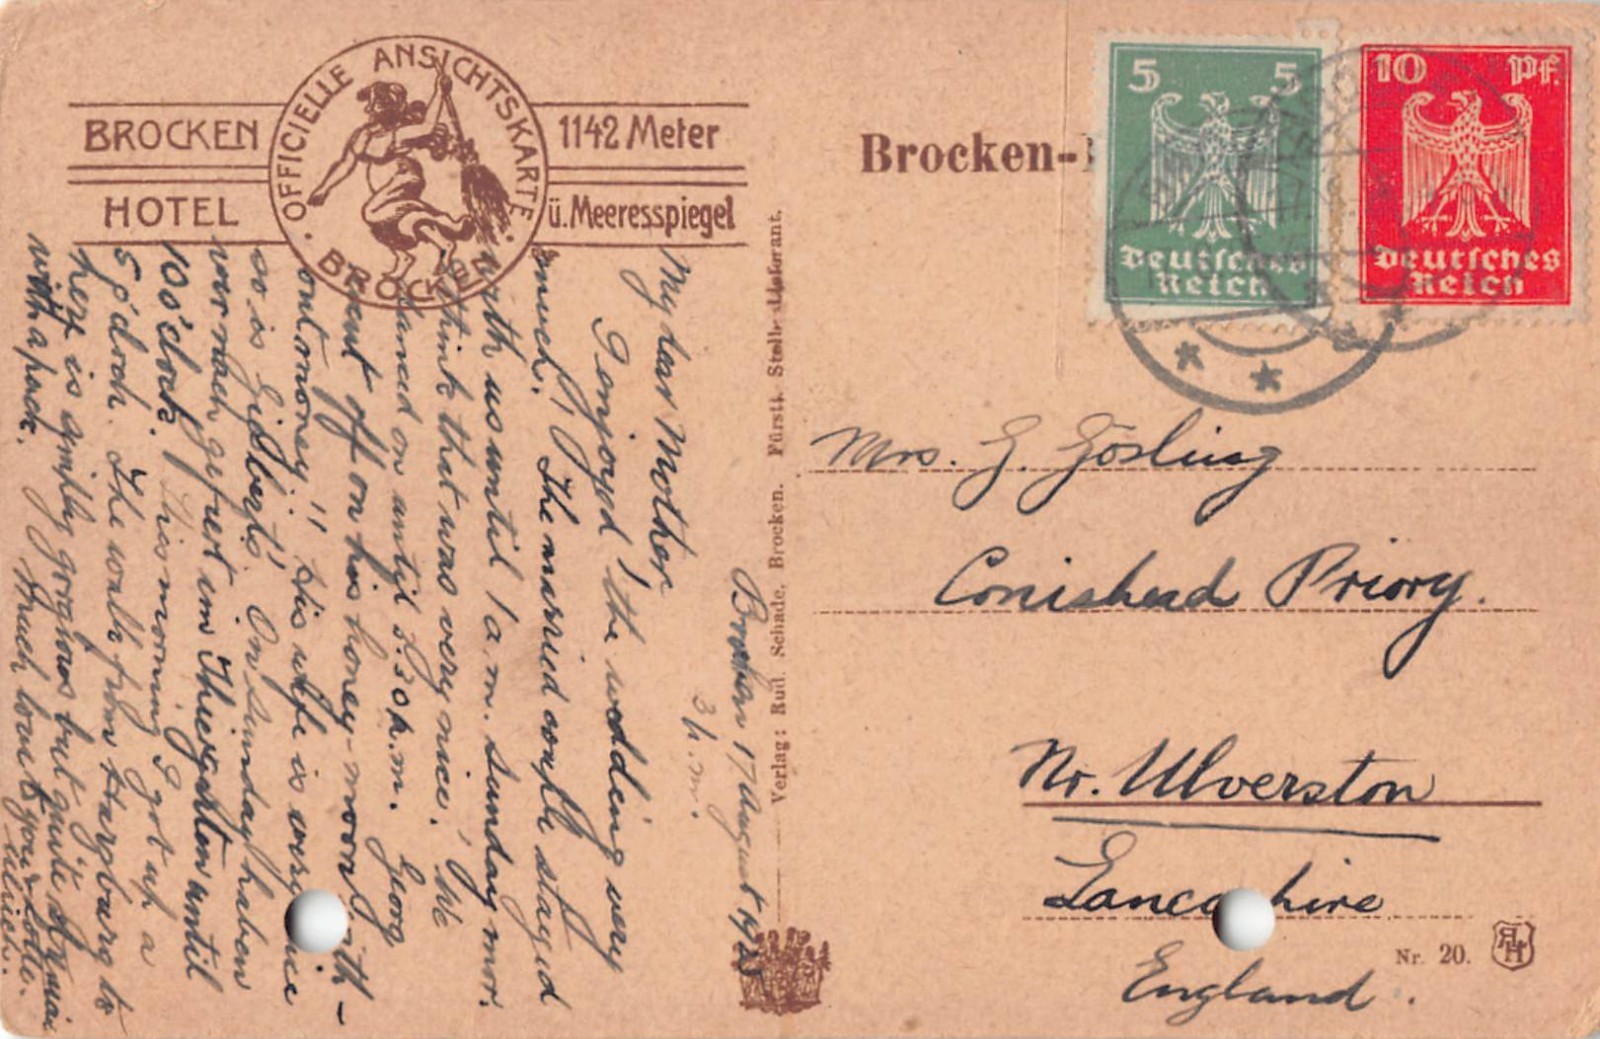 OFFICIELLE ANSICHTSKARTE
BROCKEN
BROCKEN
HOTEL
1142 Meter
ü. Meeresspiegel
Brocken-
5 5
Deutsches
Reich
10 Pf.
Deutsches
Reich
Mrs. G. Gösling
Conishead Priory.
Nr. Ulverston
Lancashire
England.
Nr. 20.
Verlag: Rud. Schade, Brocken. Fürstl. Stolb. Lieferant.
Brocken 17 August 1925
3 p.m.
My dear Mother,
I enjoyd the wedding very
much! The married couple stayed
with us until 1 a.m. Sunday mor.
I think that was very nice. We
danced on until 3.30 a.m. Georg
went off on his honey-moon with-
out money!! His wife is very nice
so is Gisbert's. On Sunday haben
wir nach gefeiert im Thiergarten until
10 o'clock. This morning I got up a
5 o'clock. The walk from Harzburg to
here is simply gorghous but quite
with a pack. Much love to you & Lotte.
Ulrich.